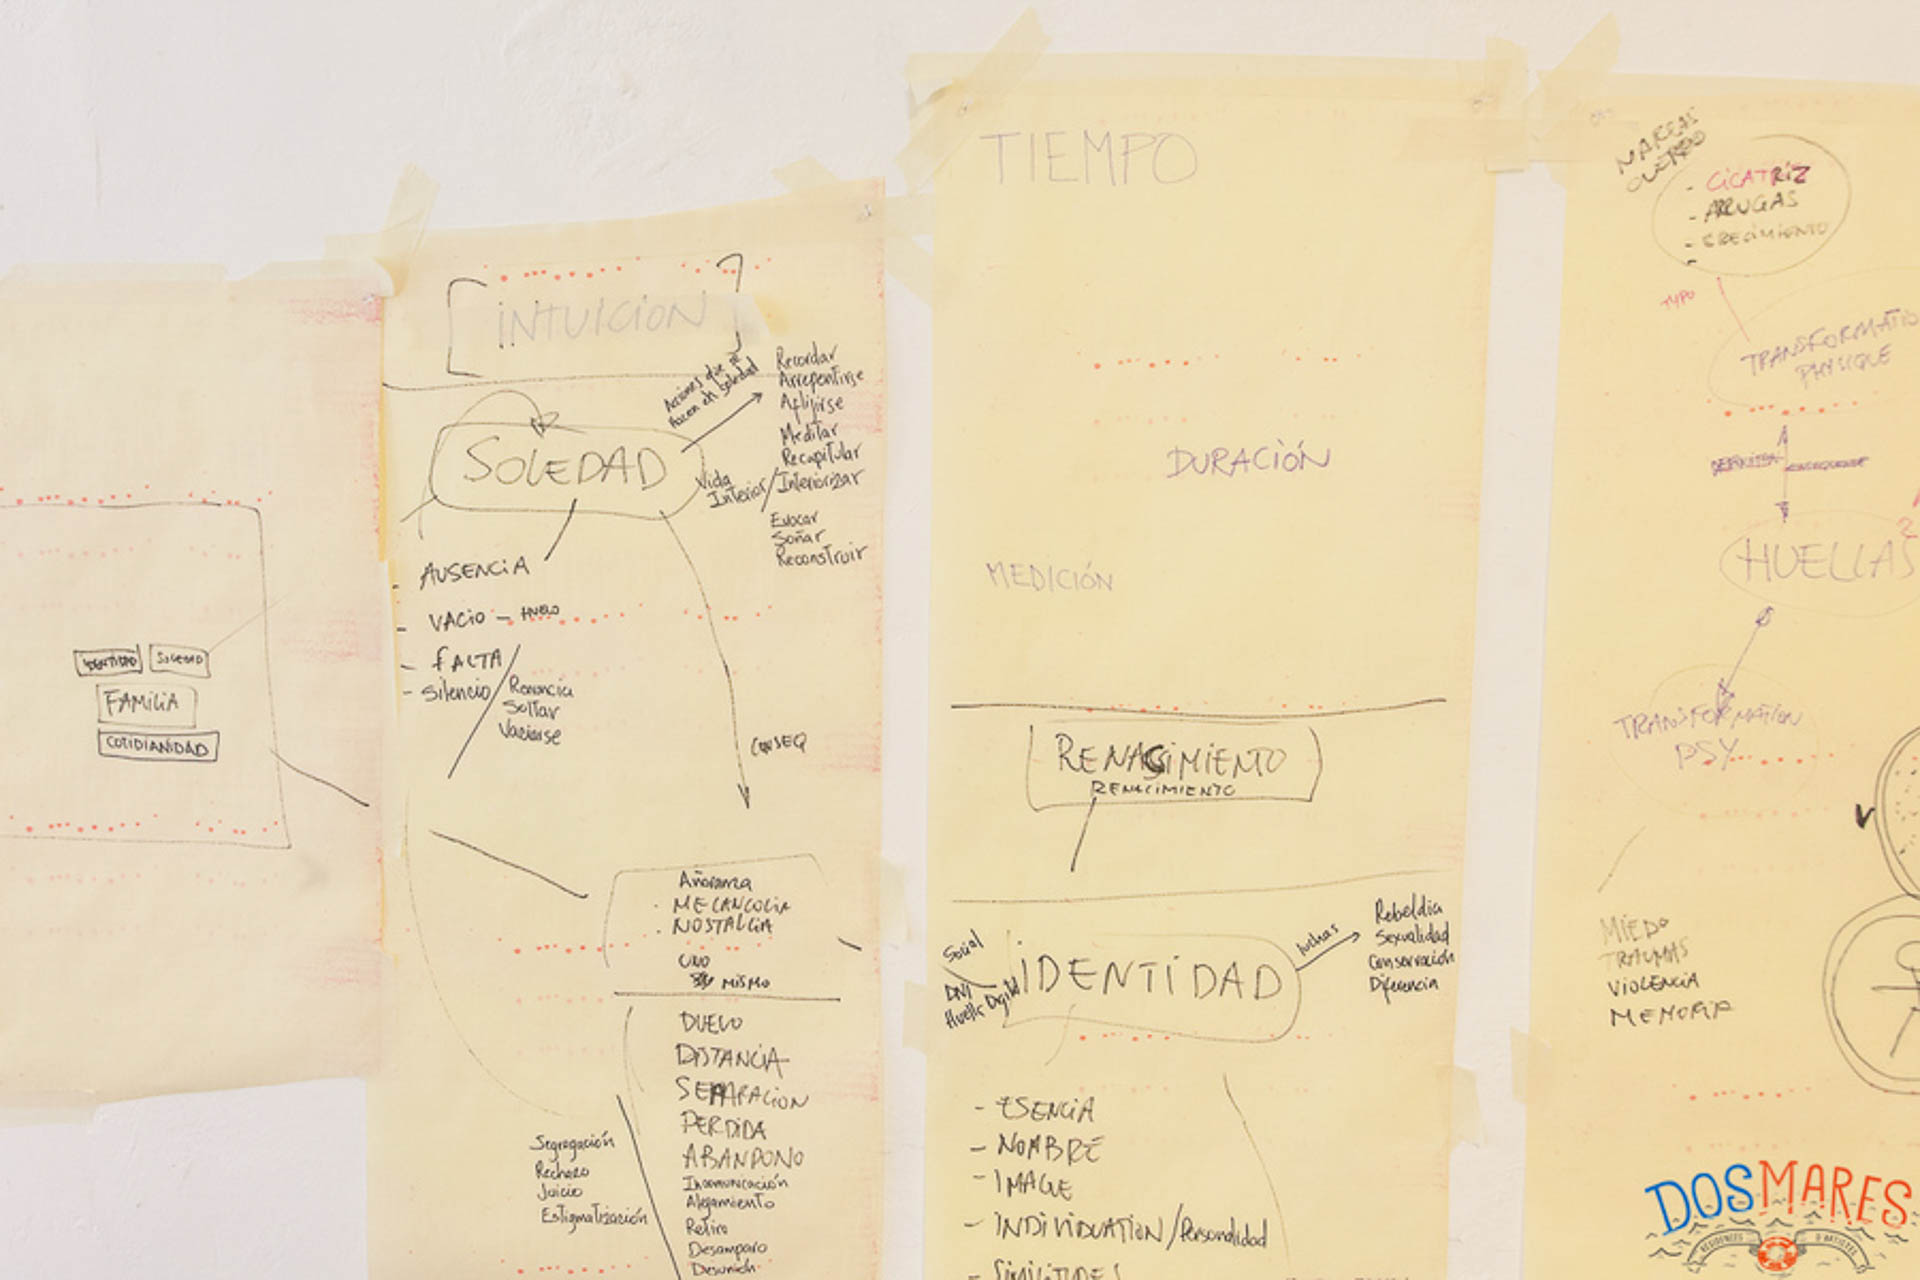 IDENTIDAD
SOLEDAD
FAMILIA
COTIDIANIDAD
INTUICION
SOLEDAD
Acciones que se
hacen en soledad
Recordar
Arrepentirse
Aflijirse
Meditar
Recapitular
Vida
Interior/Interiorizar
Evocar
Soñar
Reconstruir
- AUSENCIA
- VACIO - HUECO
- FALTA
- Silencio
Renuncia
Soltar
Vaciarse
CONSEQ
Añoranza
· MELANCOLIA
· NOSTALGIA
UNO
MISMO
DUELO
DISTANCIA
SEPARACION
PERDIDA
ABANDONO
Incomunicación
Alejamiento
Retiro
Desamparo
Segregación
Rechazo
Juicio
Estigmatización
TIEMPO
DURACIÓN
MEDICIÓN
RENASCIMIENTO
RENACIMIENTO
Social
DNI
Huella Digital
IDENTIDAD
luchas
Rebeldia
Sexualidad
Conservación
Diferencia
- ESENCIA
- NOMBRE
- IMAGE
- INDIVIDUATION/Personalidad
- SIMILITUDES
MARCAS
CUERPO
- CICATRIZ
- ARRUGAS
- CRECIMIENTO
-
TYPO
TRANSFORMATIO
PHYSIQUE
HUELLAS
2
TRANSFORMATION
PSY
MIEDO
TRAUMAS
VIOLENCIA
MEMORIA
DOSMARES
RESIDENCES D'ARTISTES